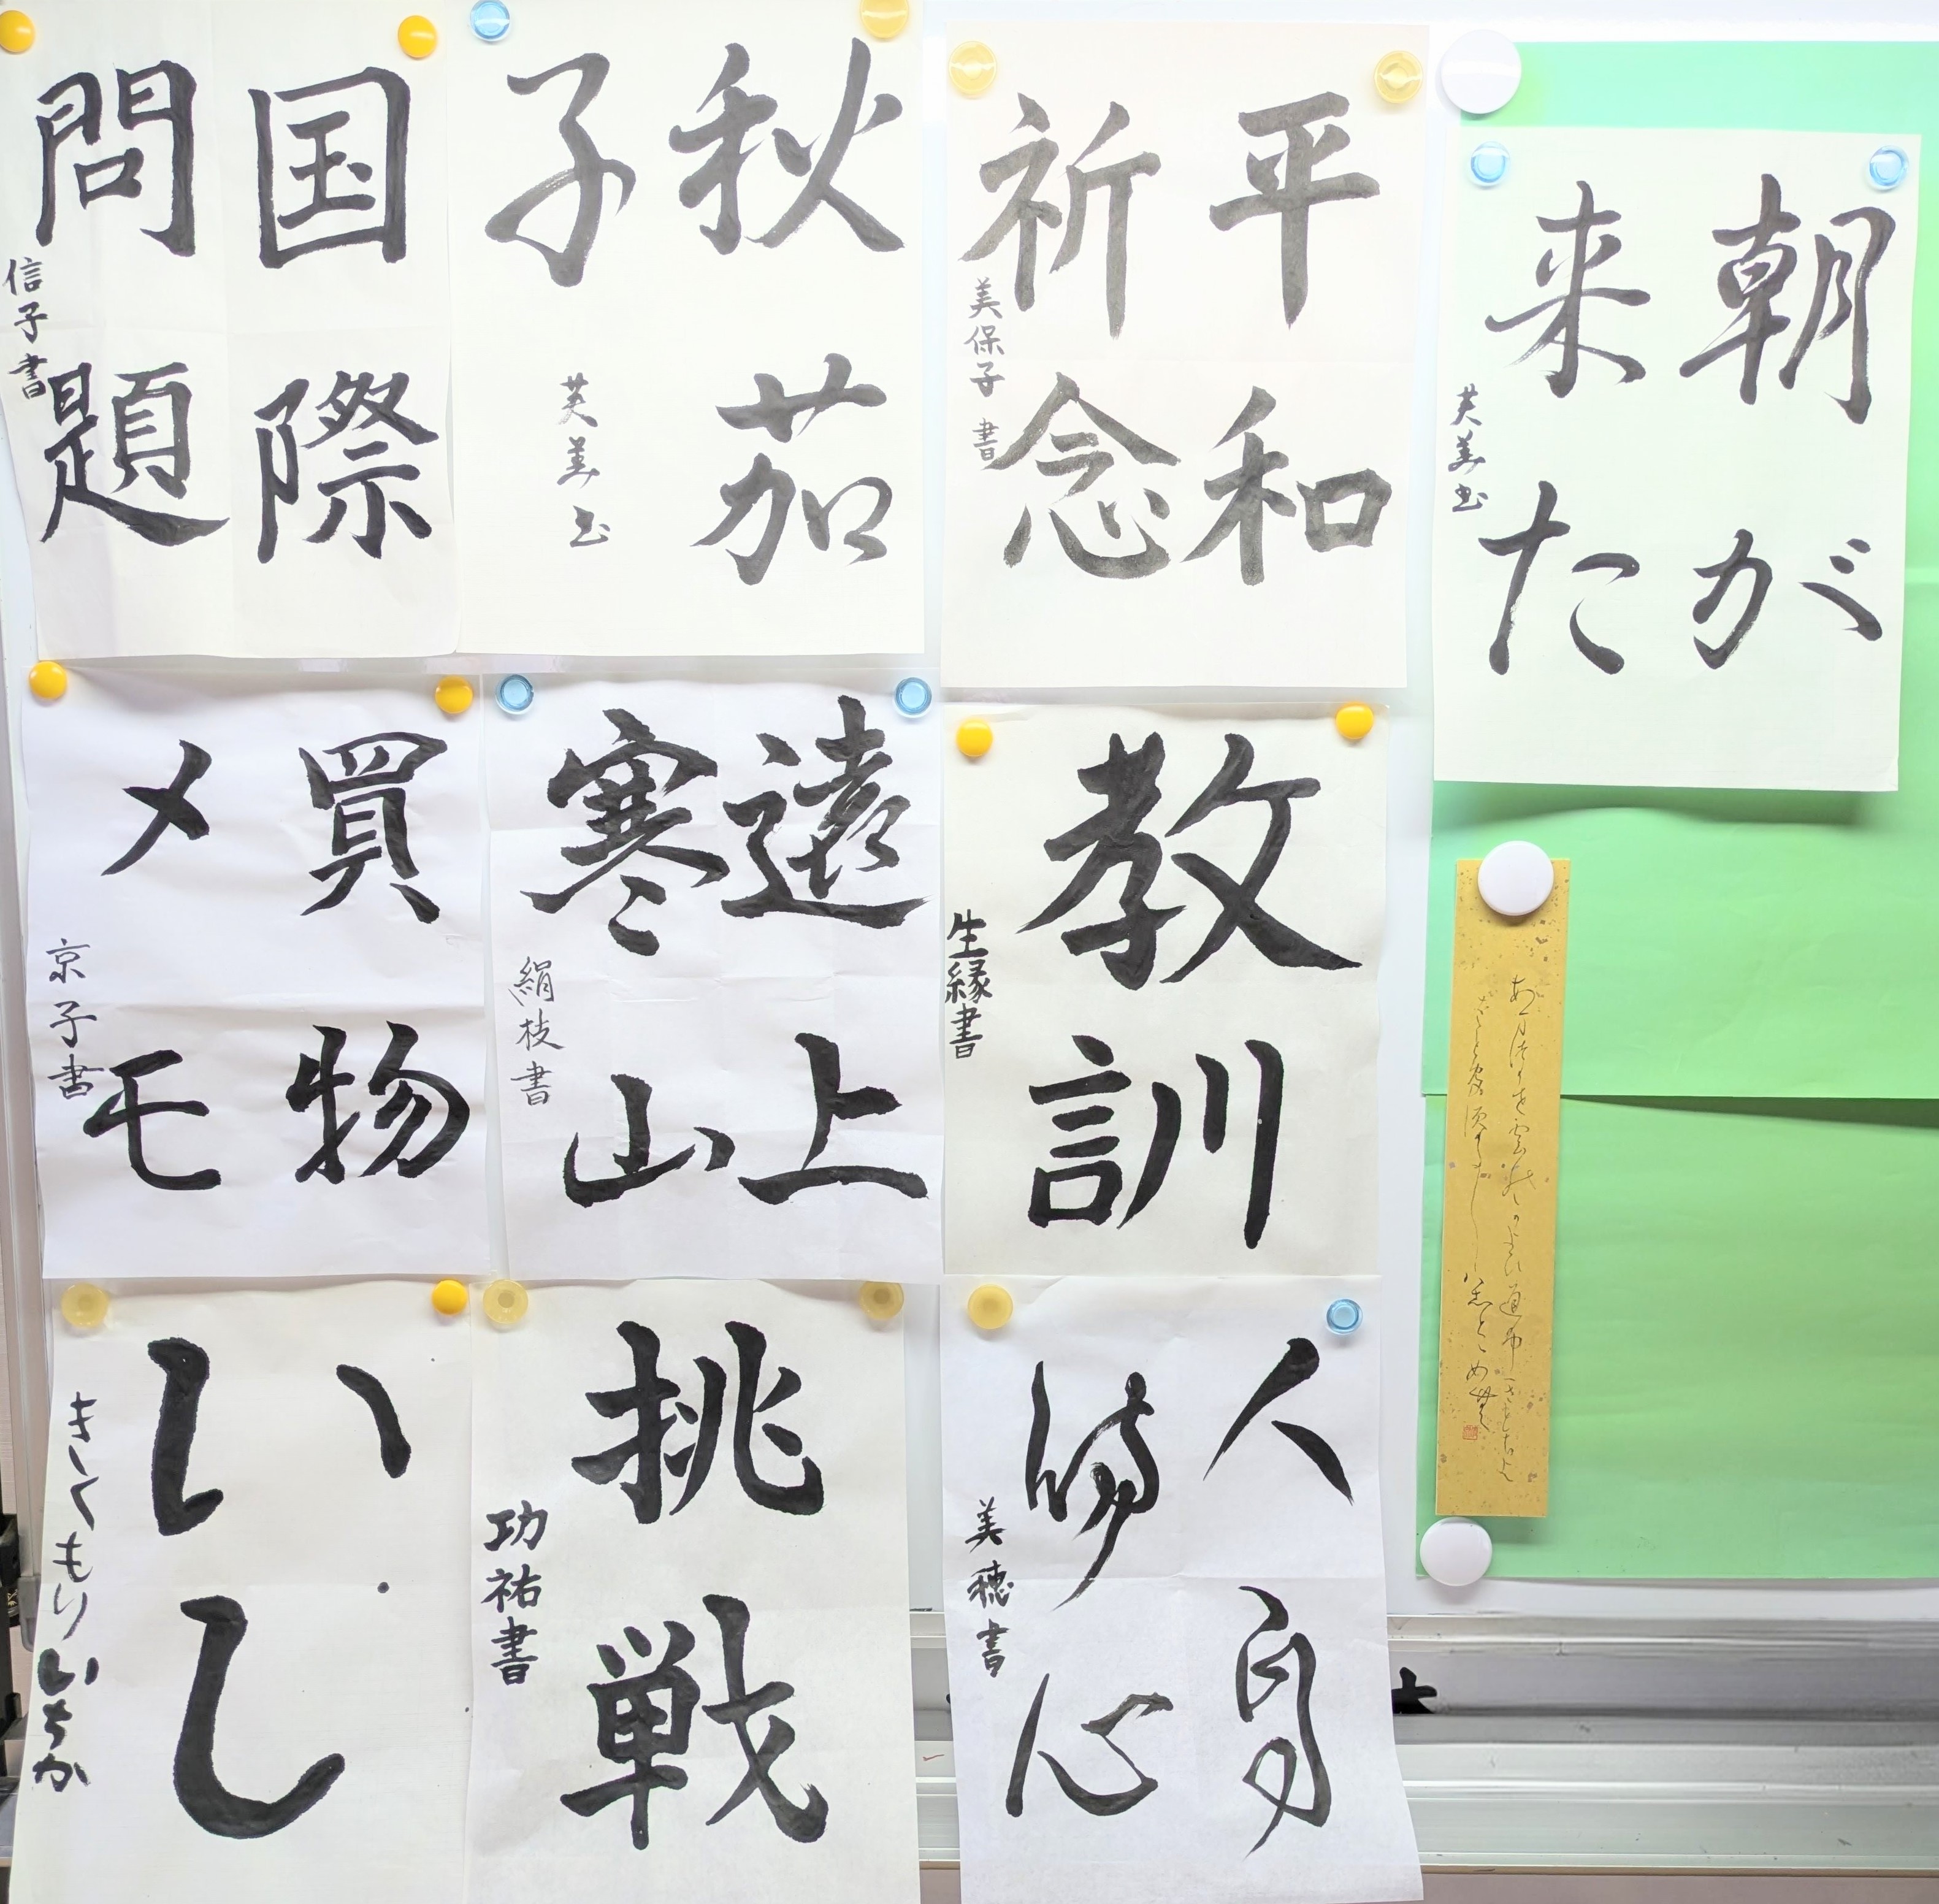 国際
問題
信子書
秋茄
子
芙美書
平和
祈念
美保子書
朝が
来た
芙美書
買物
メモ
京子書
遠上
寒山
絹枝書
教訓
生縁書
いし
きくもりいちか
挑戦
功祐書
人身
心
美穂書